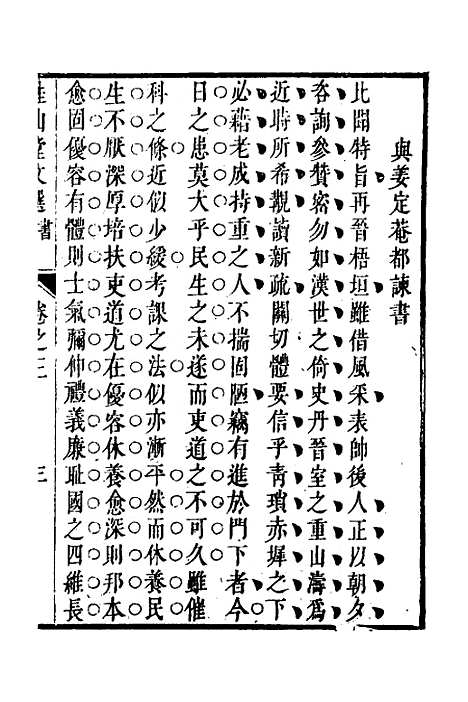 與姜定菴都諫書
比聞特旨再晉梧垣雖借風采表帥後人正以朝夕
咨詢參贊密勿如漢世之倚史丹晉室之重山濤爲
近時所希觀讀新疏關切體要信乎靑瑣赤墀之下
必藉老成持重之人不揣固陋竊有進於門下者今
日之患莫大乎民生之未遂而吏道之不可久雖催
科之條近似少緩考課之法似亦漸平然而休養民
生不厭深厚培扶吏道尤在優容休養愈深則邦本
愈固優容有體則士氣彌伸禮義廉恥國之四維長
堂文選 書
卷之三
三